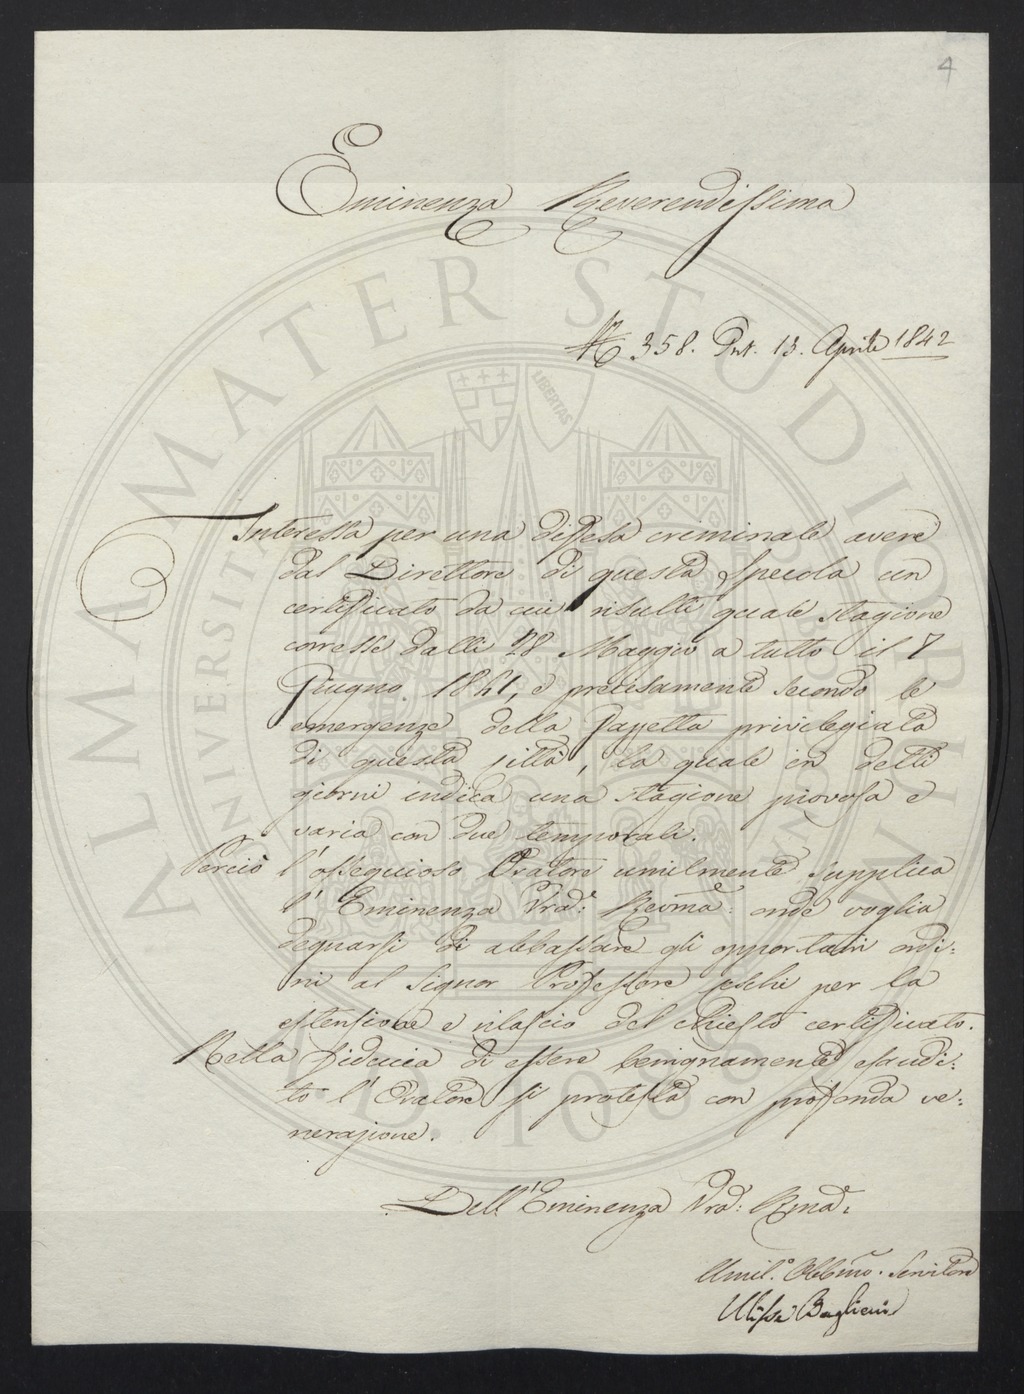 4
Eminenza Reverendissima
N. 358. Prt. 13. Aprile 1842
Interessa per una diffesa criminale avere
dal Direttore di questa Specola un
certificato da cui risulti quale stagione
corresse dalli 28 Maggio a tutto il 7
Giugno 1841, e precisamente secondo le
emergenze della Gazzetta privilegiata
di questa città, la quale in detti
giorni indica una stagione piovosa e
varia con due temporali.
Perciò l'ossequioso Oratore umilmente supplica
l'Eminenza Vrã: Revmã: onde voglia
degnarsi di abbassare gli opportuni ordi=
ni al Signor Professore per la
estensione e rilascio del chiesto certificato.
Nella fiducia di essere benignamente esaudi=
to l'Oratore si protesta con profonda ve=
nerazione.
Dell'Eminenza Vrã: Rmã:
Umil.º Obbmo. Servitore
Ulisse
ALMA MATER STUDIORUM
UNIVERSITÀ
A.D. 1088
LIBERTAS